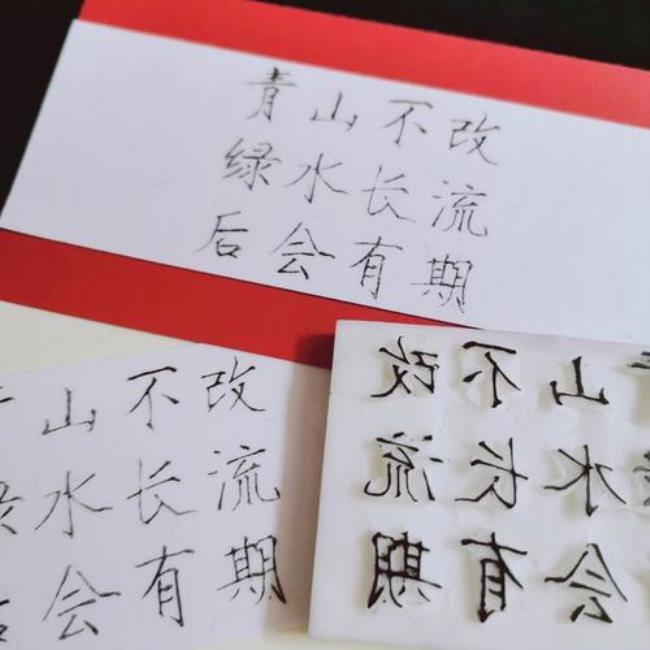 青山不改
绿水长流
后会有期
山不改
水长流
后会有期
改不山青
流长水绿
期有会